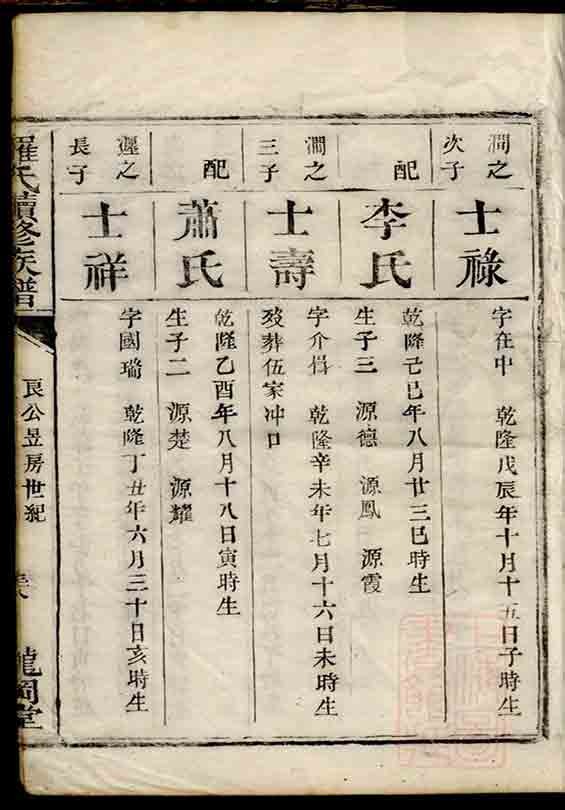 澗之
次子
士祿
字在中　乾隆戊辰年十月十五日子時生
配
李氏
乾隆己巳年八月廿三巳時生
生子三　源德　源鳳　源霞
澗之
三子
士壽
字介楫　乾隆辛未年七月十六日未時生
歿葬伍家冲口
配
蕭氏
乾隆乙酉年八月十八日寅時生
生子二　源楚　源耀
遲之
長子
士祥
字國瑞　乾隆丁丑年六月三十日亥時生
羅氏續修族譜
良公昱房世紀
龍岡堂